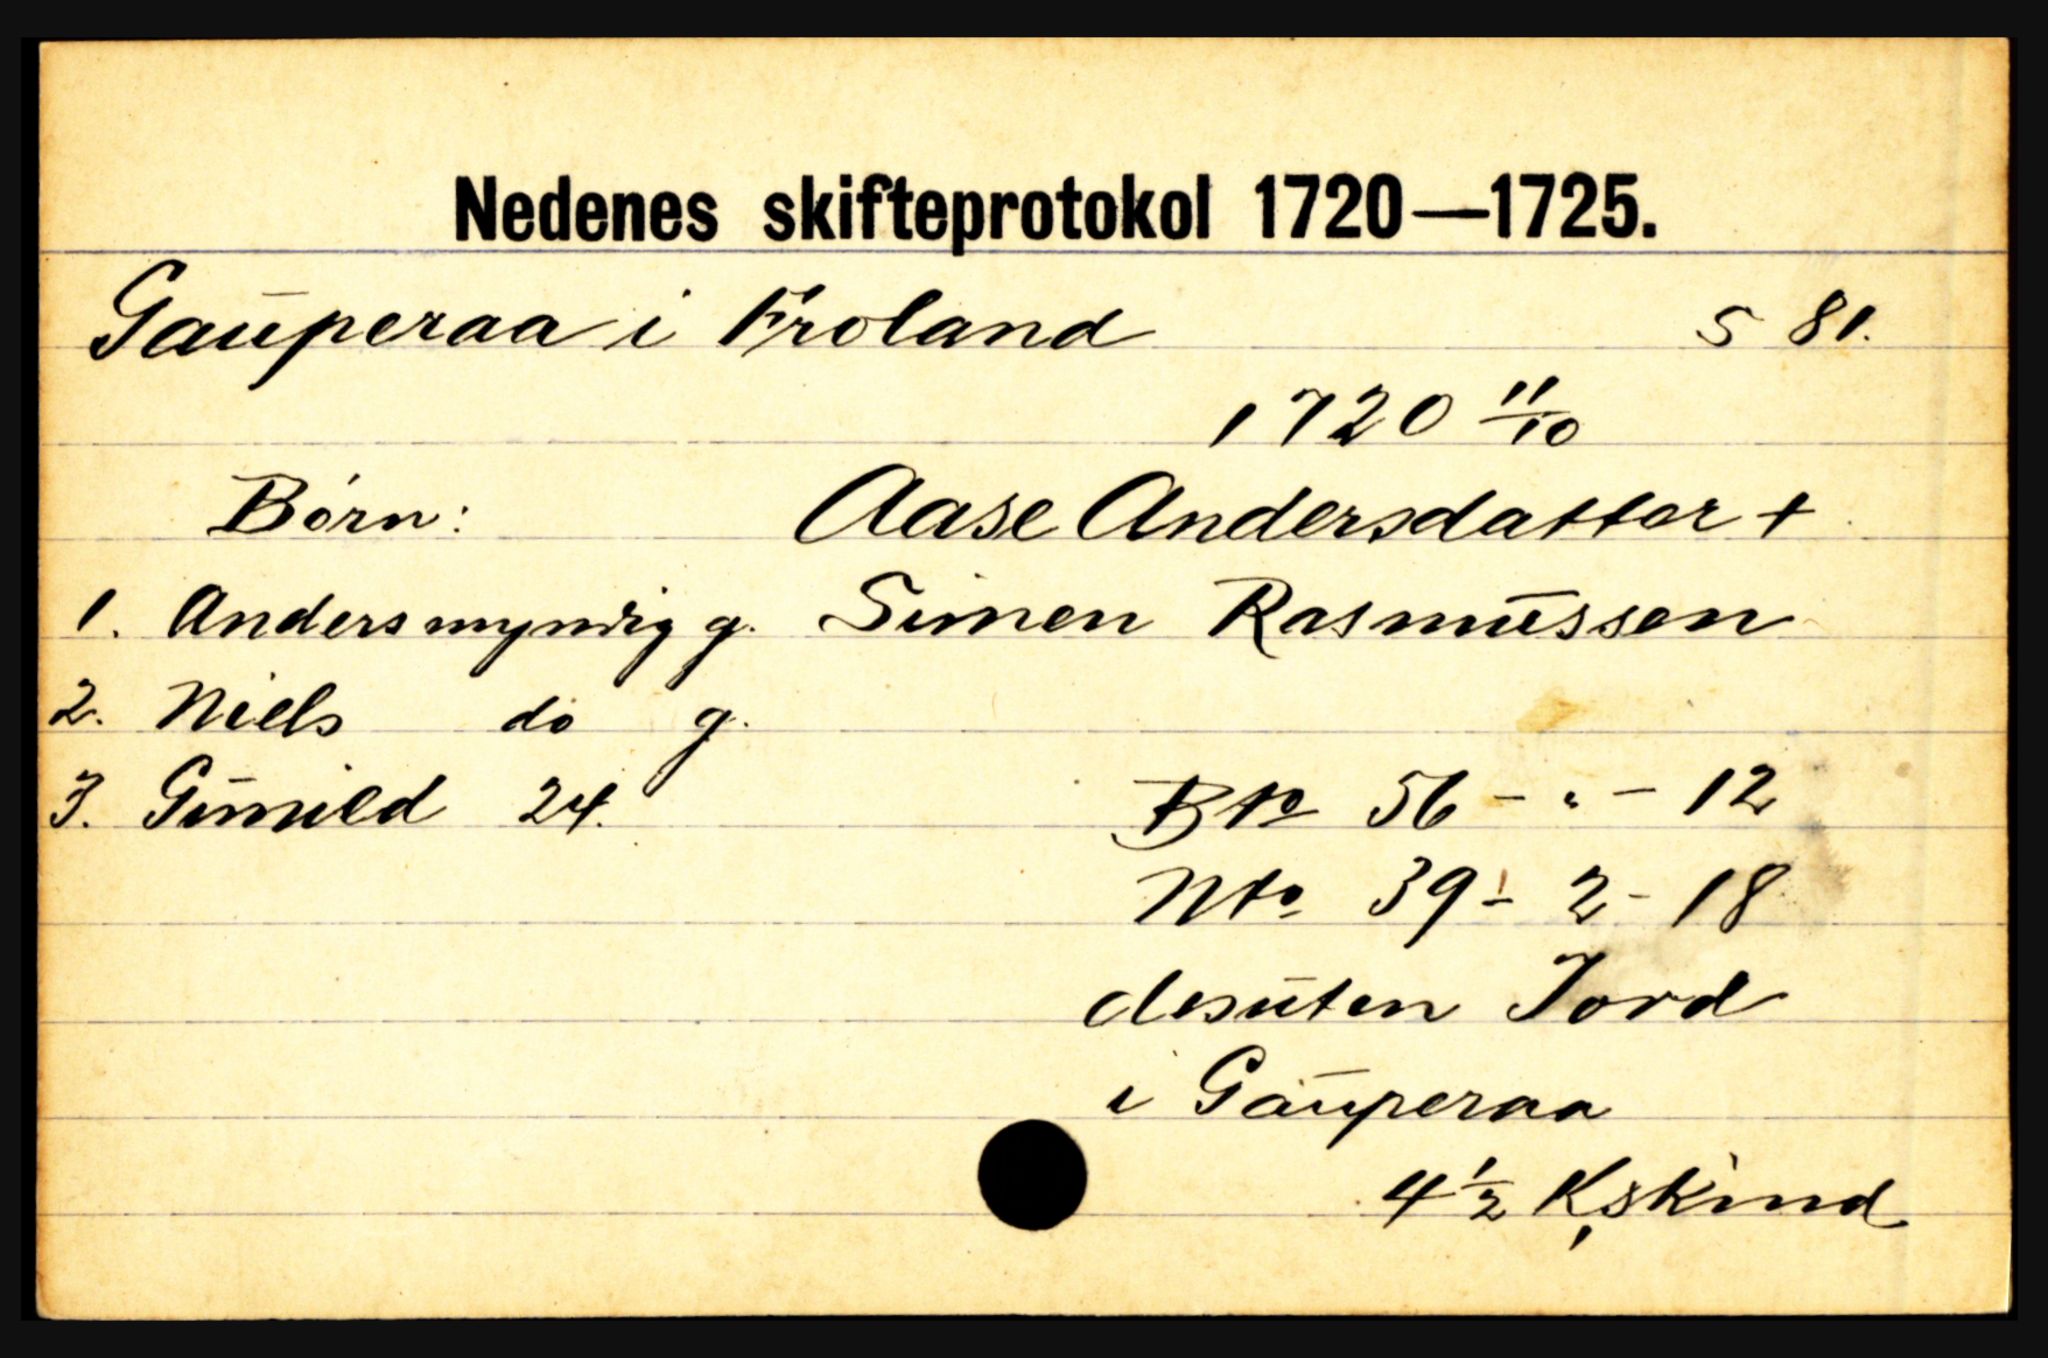 Nedenes skifteprotokol 1720—1725.
Gauperaa i Froland S 81.
1720 11/10
Børn: Aase Andersdatter +
1. Anders myndig g. Simen Rasmussen
2. Niels do g.
3. Gunild 24.
Bto 56 - " - 12
Nto 39 - 2 - 18
desuten Jord
i Gauperaa
4 1/2 K,skind